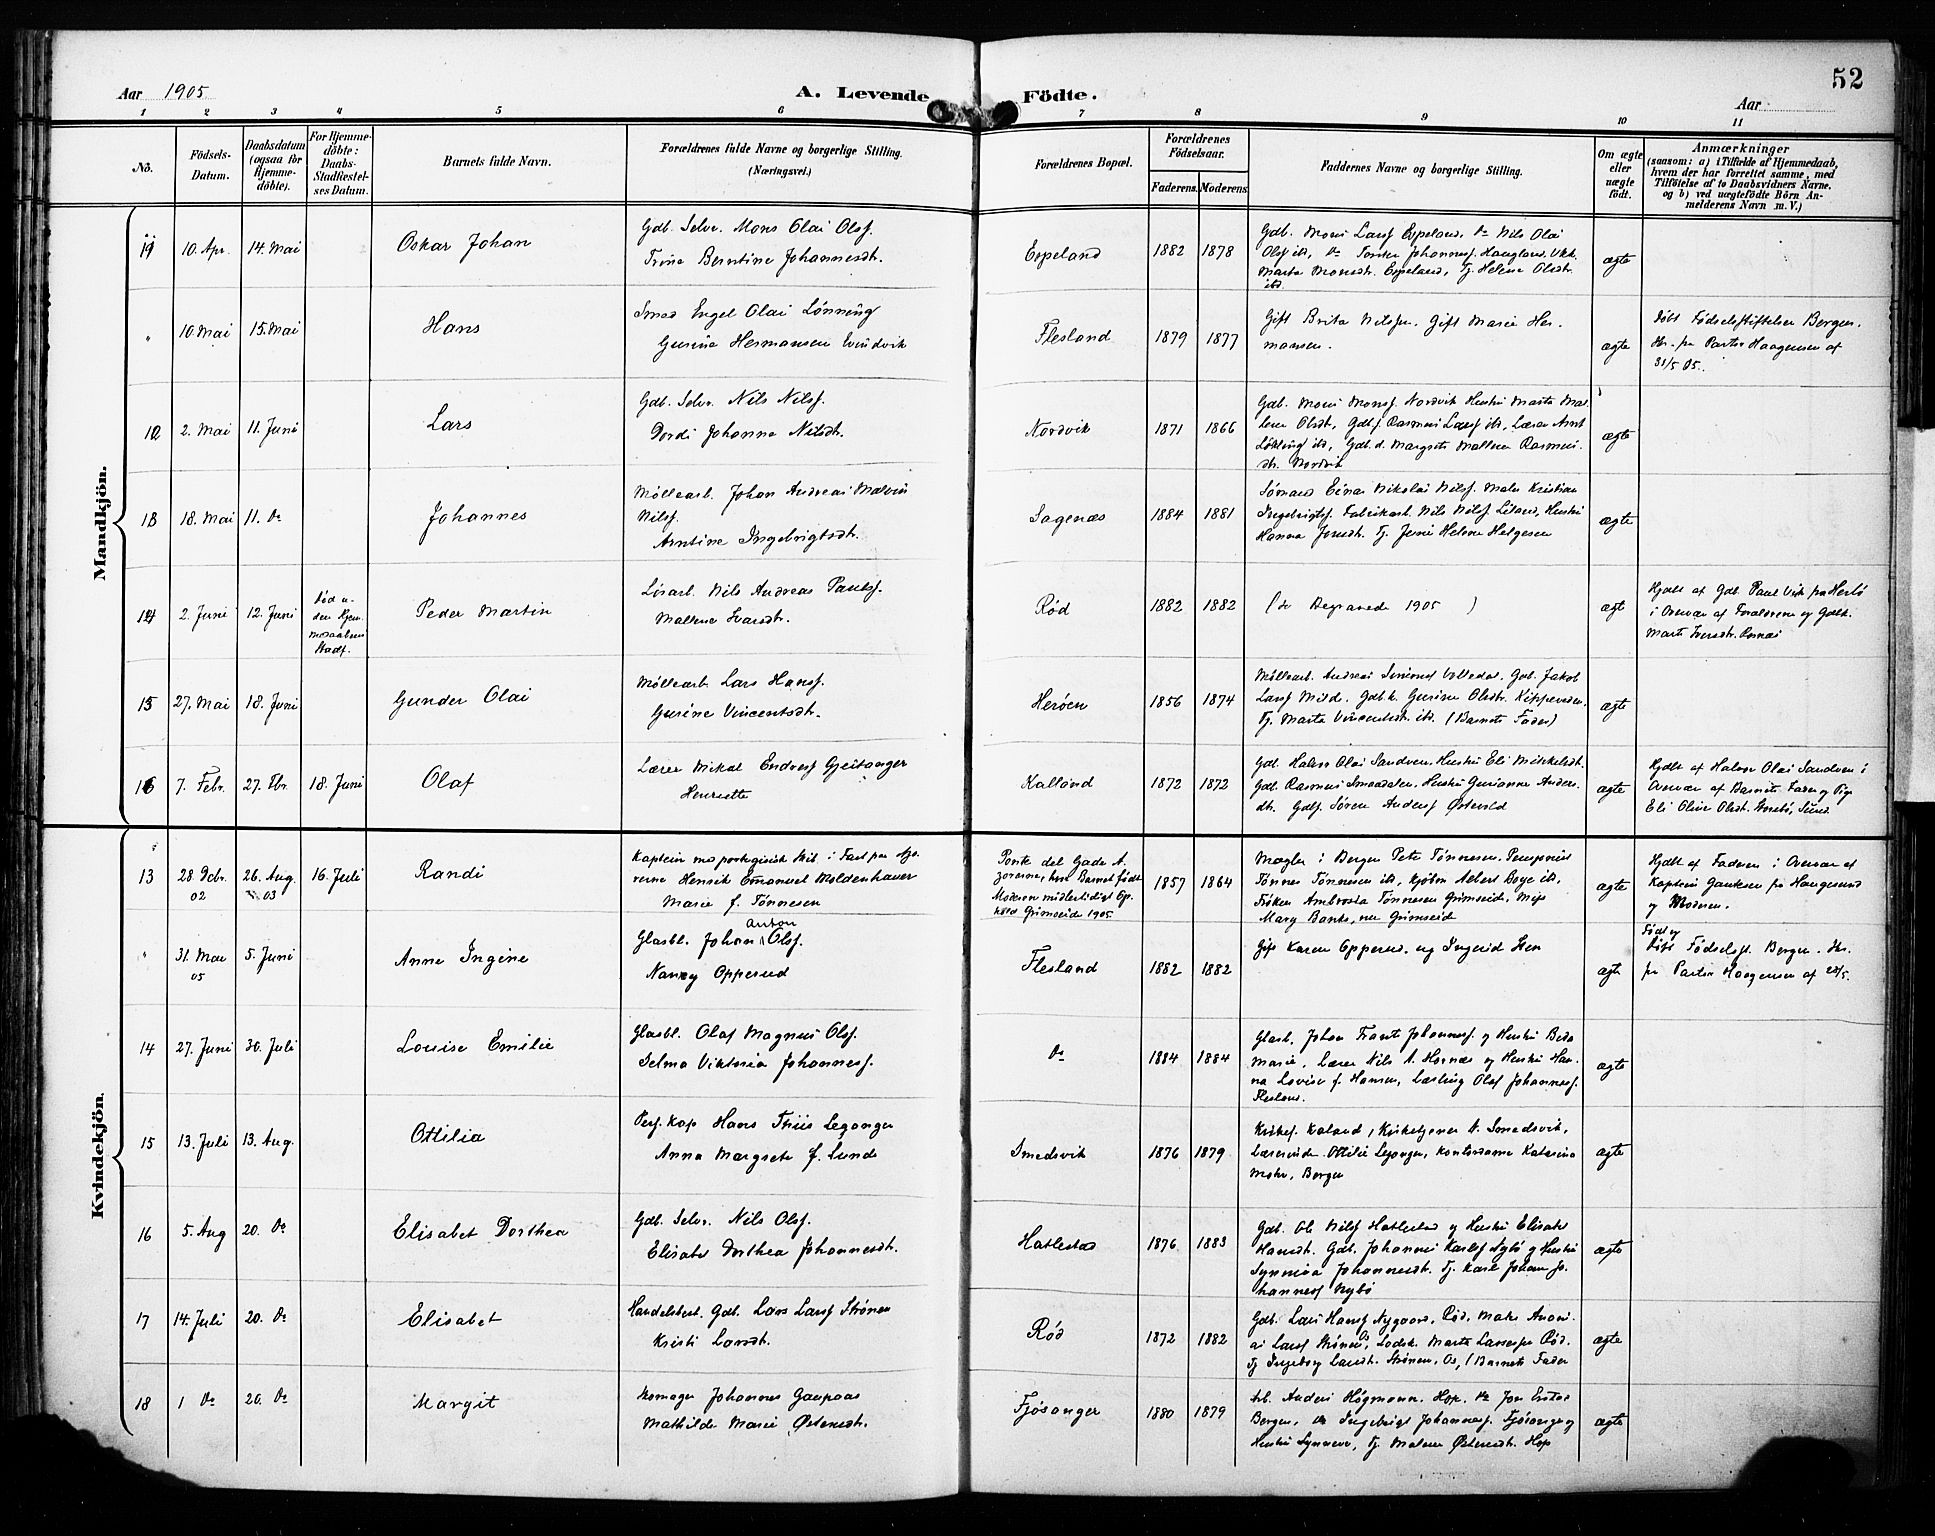 52
Aar 1905
A. Levende Födte.
Aar
1 2 3 4 5 6 7 8 9 10 11
No.
Födsels-Datum.
Daabsdatum (ogsaa för Hjemme-döbte).
For Hjemme-döbte: Daabs-Stadfæstel-ses Datum.
Barnets fulde Navn.
Forældrenes fulde Navne og borgerlige Stilling. (Næringsvei.)
Forældrenes Bopæl.
Forældrenes Födselsaar.
Faderens. Moderens.
Faddernes Navne og borgerlige Stilling.
Om ægte eller uægte födt.
Anmærkninger
(saasom: a) i Tilfælde af Hjemmedaab, hvem der har forrettet samme, med Tilföielse af to Daabsvidners Navne, og b) ved uægtefödte Börn An-melderens Navn m. V.)
Mandkjön.
11 10. Apr. 14. Mai Oskar Johan
Gdb. Selv. Mons Olai Olsf.
Trine Berntine Johannesdt.
Espeland 1882 1878
Gdb. Mons Larsf Espeland, Do Nils Olai
Marta Monsdt. Espeland, Tj. Helene Olsdt.
ibd.
ægte
" 10. Mai 15. Mai Hans
Smed Engel Olai Lønning
Gurine Hermansen Evindvik
Flesland 1879 1877
Gift Brita Nilsen. Gift Marie Her-
mansen.
ægte
Døbt Fødselsstiftelsen Bergen.
31/5 05.
12 2. Mai 11. Juni Lars
Gdb. Selv. Nils Nilsf.
Dordi Johanna Nilsdt.
Nordvik 1871 1866
Gdb. Mons Monsf. Nordvik Hustru Marta Mal-
lene Olsdt, Gdbf. Rasmus Larsf ibd, Lærer Arnt
Løkling ibd, Gdb. d. Margrete Mallene Rasmus-
dt. Nordvik
ægte
13 18. Mai 11. Do Johannes
Møllearb. Johan Andreas Malvin
Nilsf.
Arntine Ingebrigtsdt.
Sagenæs 1884 1881
Sømand Einar Nikolai Nilsf. Maler Kristian
Ingebrigtsf. Fabrikarb. Nils Nilsf Liland, Hustru
Hanna Jonsdt. Tj. Helene Helgesen
ægte
14 2. Juni 12. Juni
Død u-
den Hjem-
medaabens
Stadf.
Peder Martin
Løsarb. Nils Andreas Paulsf.
Mallene Ivarsdt.
Rød 1882 1882
(se Begravede 1905)
ægt
Hjdbt af Gdb. Paul Vik
i Overvær af Forældrene og Gdbk.
15 27. Mai 18. Juni Gunder Olai
Møllearb. Lars Hansf.
Gurine Vincentsdt.
Herøen 1856 1874
Møllearb. Andreas Simonsf Gdb. Jakob
Larsf Mild. Gdbk. Gurine Olsdt.
Tj. Marta Vincentsdt. ibd. (Barnets Fader)
ægte
16 7. Febr. 27. Fbr. 18. Juni Olaf
Lærer Mikal Endresf Gjeitanger
Henriette
Kalland 1872 1872
Gdb. Halvor Olai Sandven, Hustru Eli Mikkelsdt.
Gdb. Rasmus Smaadalen, Hustru Gurianne Anders-
dt. Gdbf. Søren Andersf Østervold
ægte
Hjdbt af Halvor Olai Sandven i
Overvær af Barnets Fader og Pige
Eli Oline Olsdt. Storebø, Sund
Kvindekjön.
13 28. Dcbr. 02 26. Aug. 03 16. Juli Randi
Kaptein Henrik Emanuel Moldenhauer
Marie f. Tönnesen
Moderen midlertidigt Op-
hold Grimseide 1905
1857 1864
Mægler i Bergen Peter Tönnesen,
Tönnes Tönnesen ibd, Kjöbm Albert Boye ibd,
Frøken Ambrosia Tönnesen Grimseide, Miss
Mary Banks, nu Grimseide
ægte
Hjdbt af Faderen i Overvær af
Kaptein Gauksen fra Haugesund
og Moderen.
" 31. Mai 05 5. Juni Anne Ingine
Glasbl. Johan Anton Olsf.
Nanny Opperud
Flesland 1882 1882
Gift Karen Opperud, og Ingerid Hen
ægte
Født og
døbt Fødselsst. Bergen.
14 27. Juni 30. Juli Louise Emilie
Glasbl. Olaf Magnus Olsf.
Selma Viktoria Johannesf.
Do 1884 1884
Glasb. Johan Frants Johannesf. og Hustru Beda
Marie, Lærer Nils A. Hornæs og Hustru Han-
na Lovise f. Hansen, Lærling Olaf Johannesf.
Flesland.
ægte
15 13. Juli 13. Aug. Ottilia
Pers. Kap. Hans Thiis Leganger
Anna Margrete f. Lunde
Smedsvik 1876 1879
Kirkes. Kaland, Kirketjener A. Smedsvik,
Lærerinde Ottilie Leganger, Kontordame Katarina
Mohr, Bergen
ægte
16 5. Aug 20. Do Elisabet Dorthea
Gdb. Selv. Nils Olsf.
Elisabet Dorthea Johannesdt.
Hatlestad 1876 1883
Gdb. Ole Nilsf Hatlestad og Hustru Elisabet
Hansdt. Gdb. Johannes Karlsf Nybø og Hustru
Synneva Johannesdt. Tj. Karl Johan Jo-
hannesf Nybø
ægte
17 14. Juli 20. Do Elisabet
Handelsbest. Gdb. Lars Larsf Strønen
Kristi Larsdt.
Rød 1872 1882
Gdb. Lars Hansf Nygaard, Rød, Maler Anani-
as Larsf Strønen, Os, Marta Larsen Rød,
Tj. Ingeborg Larsdt. Strønen, Os, (Barnets Fader
ægte
18 1 Do 20. Do Margit
Skomager Johannes Gaupaas
Mathilde Marie Østensdt.
Fjøsanger 1880 1879
Arb. Anders Høgmann, Hop,
Bergen, Do Ingebrigt Johannesf. Fjøsanger og
Hustru Synneve, Tj. Malene Østensdt. Hop
ægte